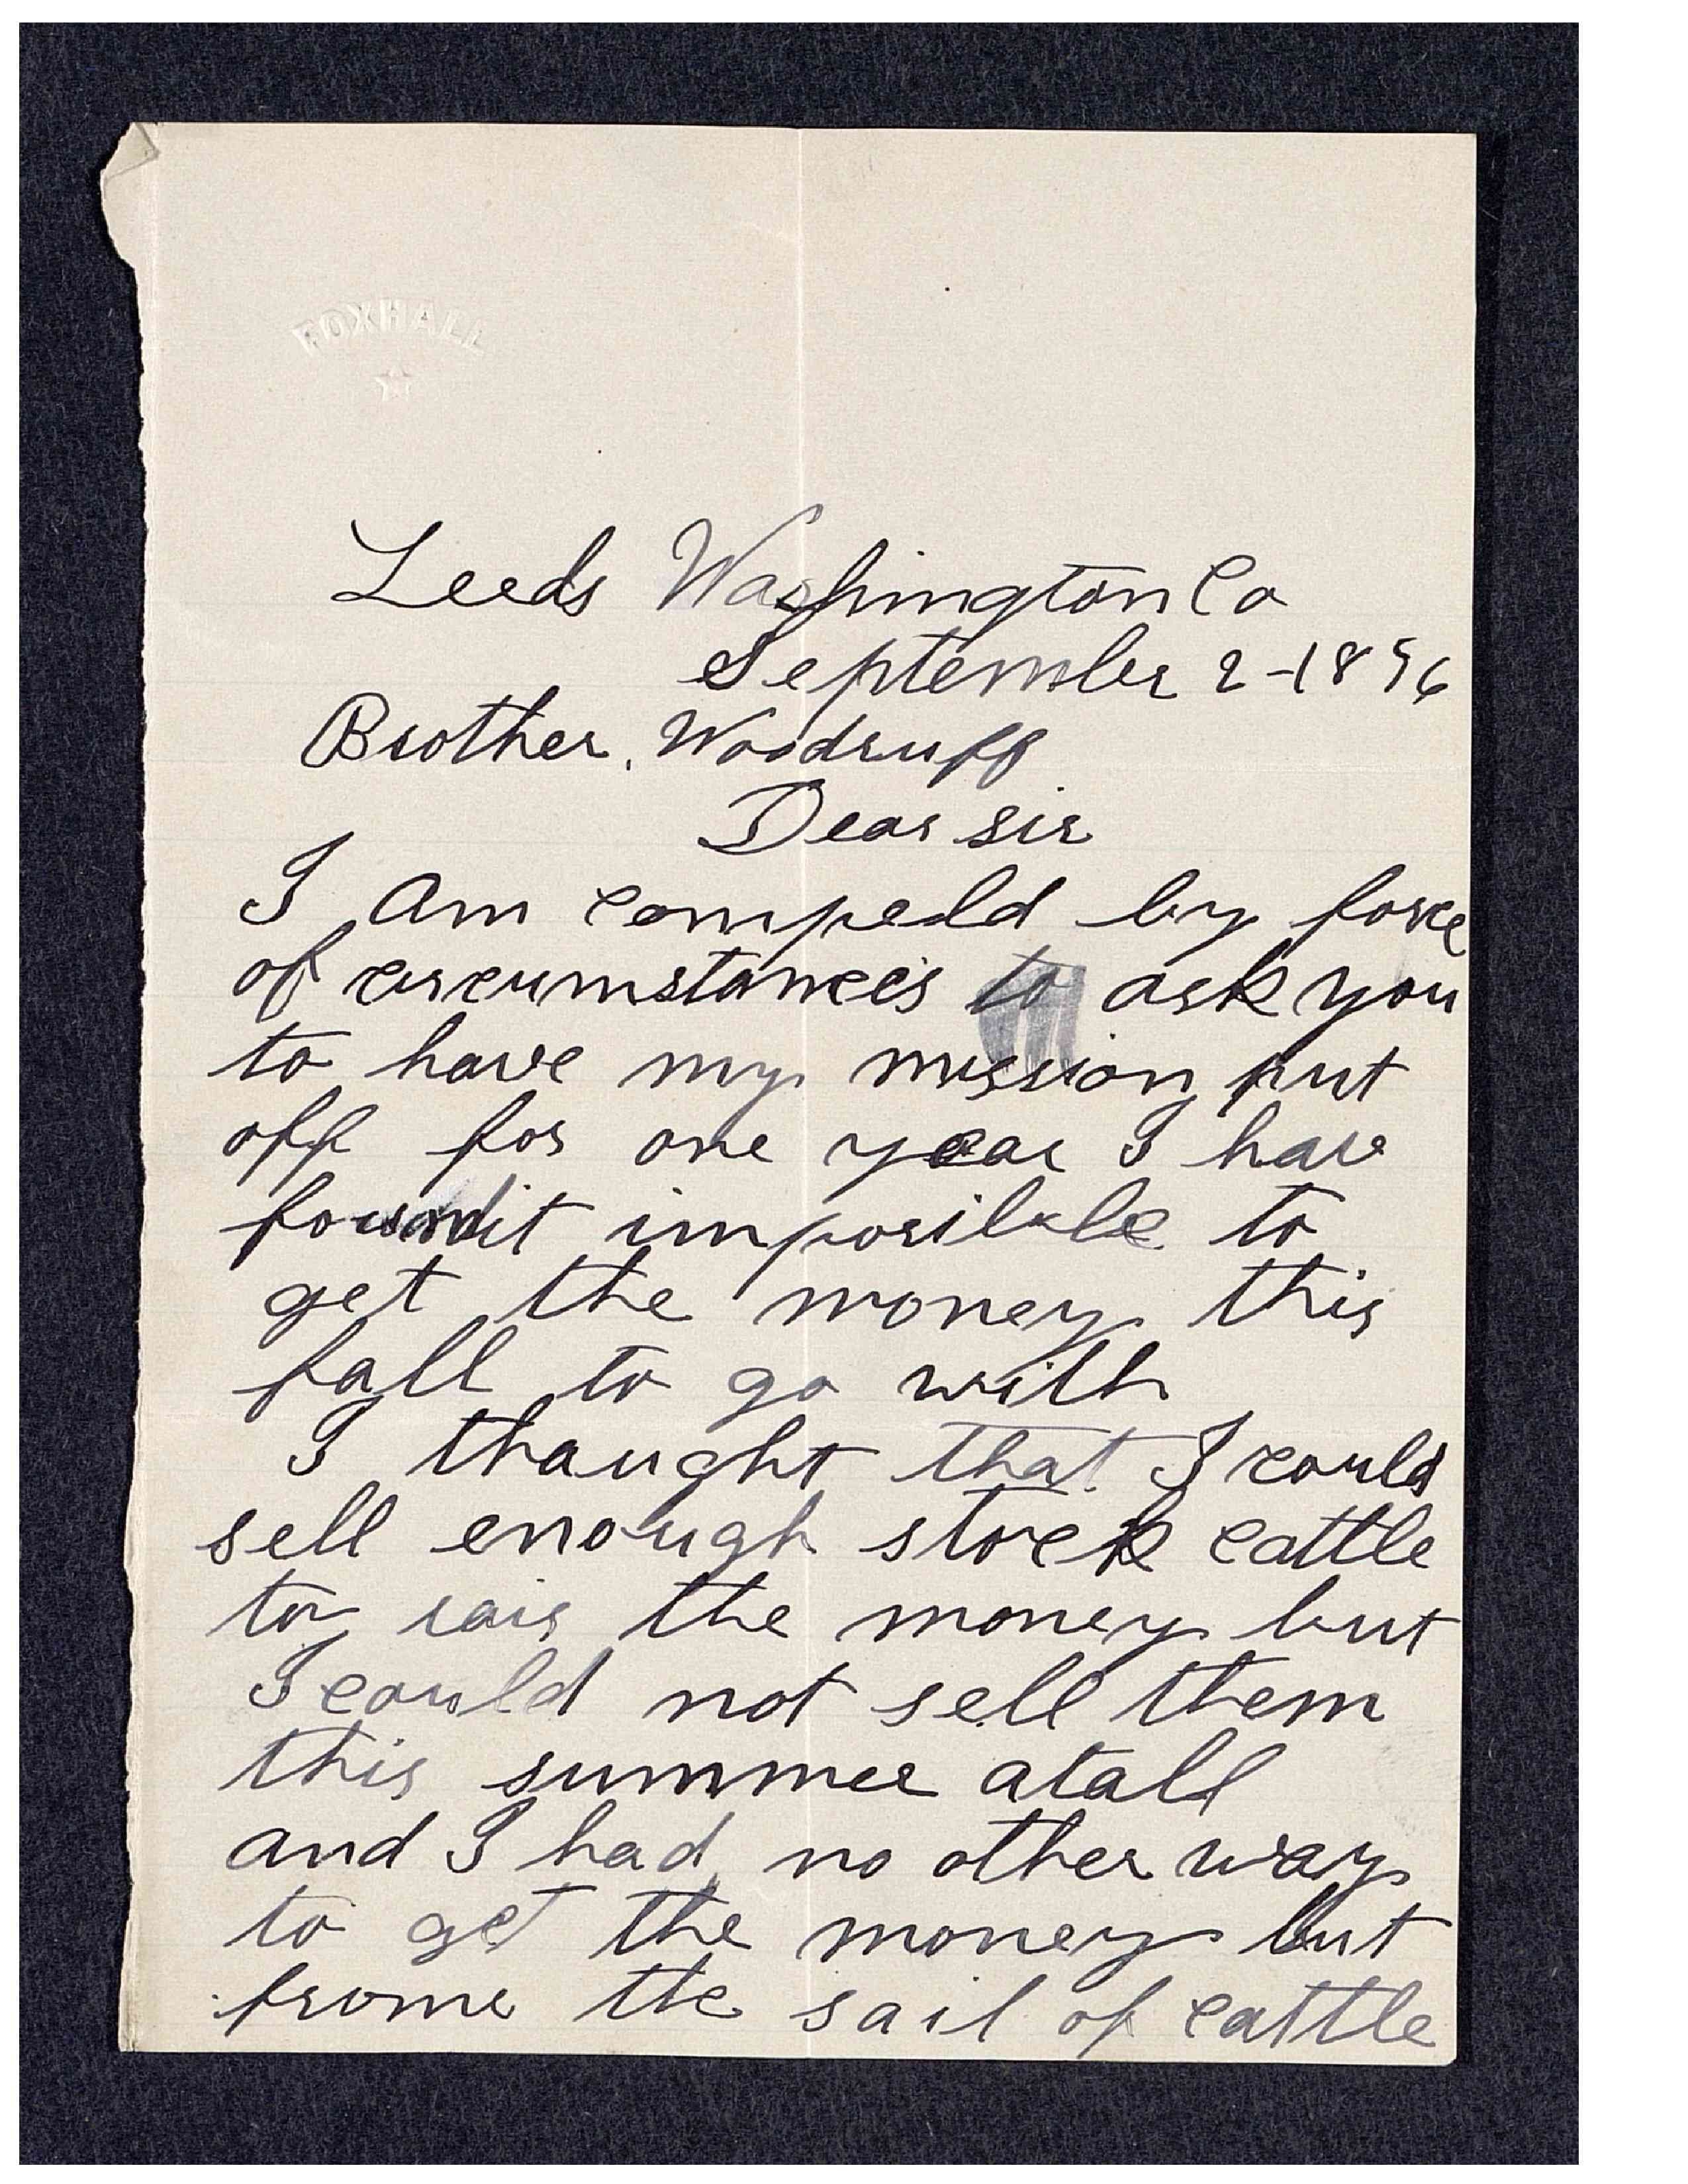 FOXHALL
Leeds Washington Co
September 2-1896
Brother. Woodruff
Dear sir
I Am compeld by force
of circumstances to ask you
to have my mission put
off for one year I have
found it imposible to
get the money this
fall to go with
I thought that I could
sell enough stock cattle
to rais the money but
I could not sell them
this summer atall
and I had no other way
to get the money but
frome the sail of cattle